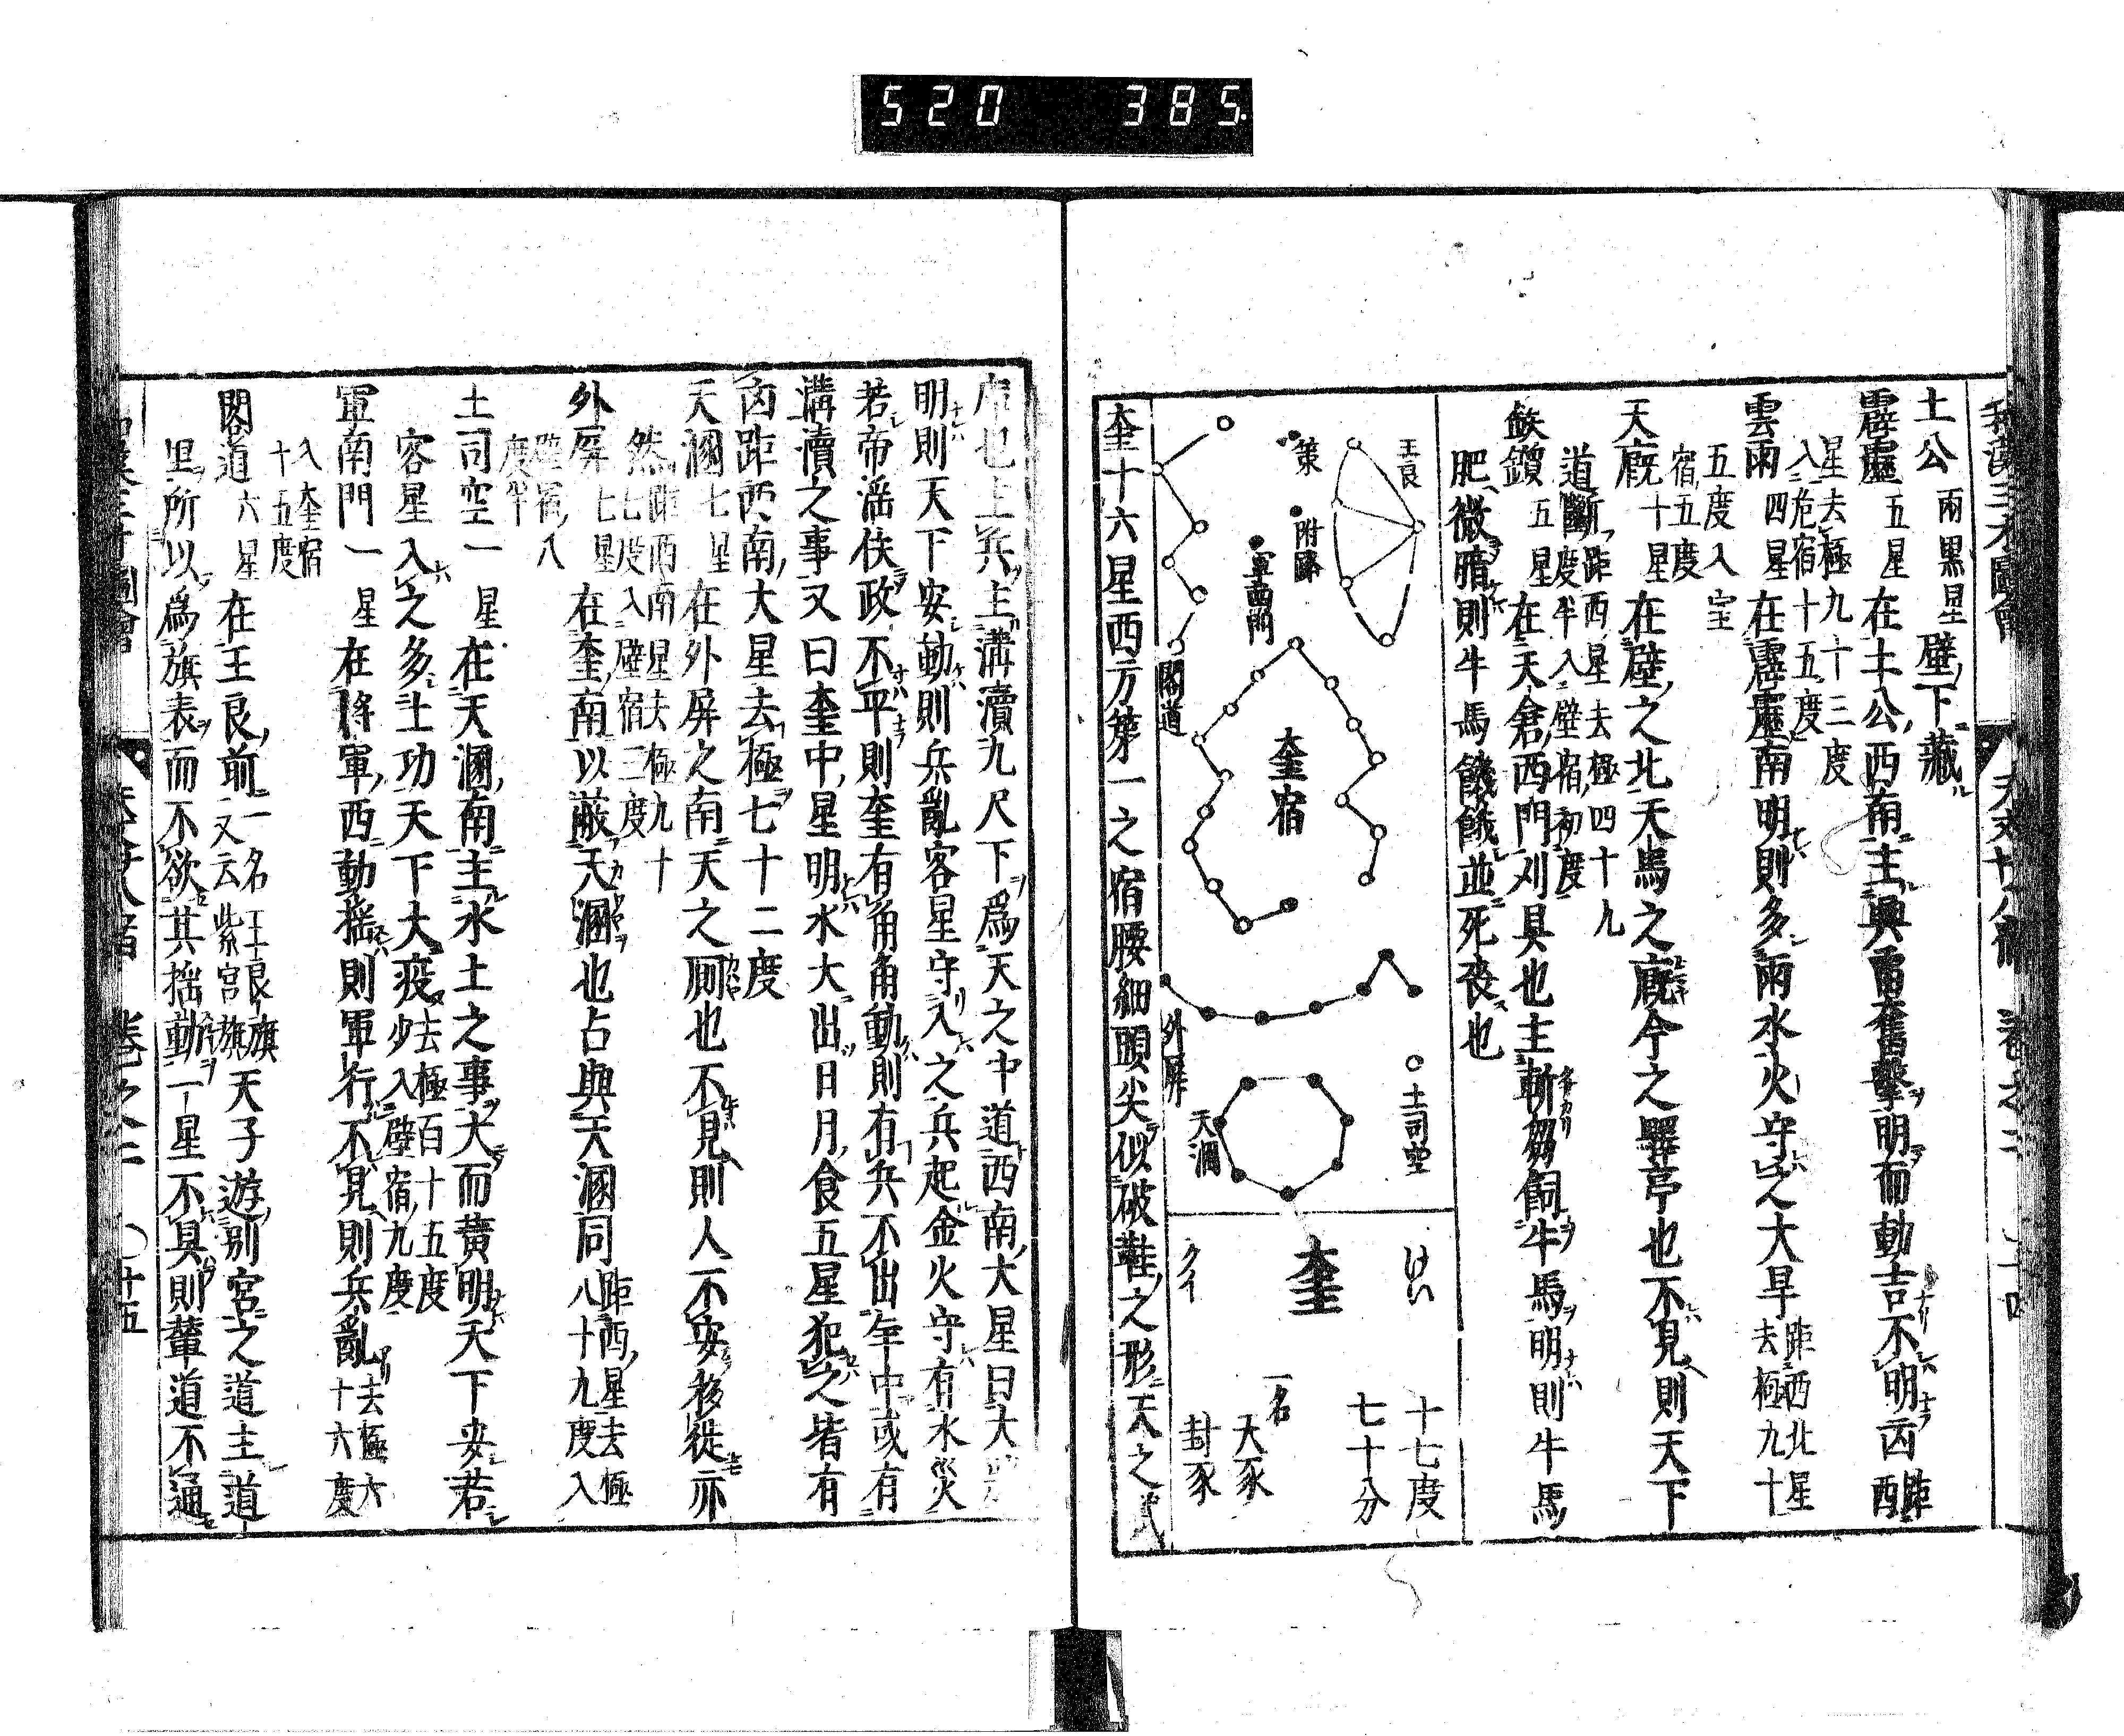 520 385.
土公 兩黑星 壁下藏
霹靂 五星 在土公西南主興雷奮擊明而動吉不明凶 距西
星去極九十三度
入危宿十五度
雲雨 四星 在霹靂南明則多雨水火守之大旱 距西北星去極九十
五度入室
宿五度
天廐 十星 在壁之北天馬之廐今之驛亭也不見則天下
道斷 距西星去極四十九
度半入壁宿初度
鈇鑕 五星 在天倉西門刈具也主斬芻飼牛馬明則牛馬
肥微暗則牛馬饑餓並死喪也
王良
策
附路
軍南門
閣道
奎宿
外屏
土司空
天溷
けい
奎
クイ
十七度
七十分
一名
天豕
封豕
奎十六星西方第一之宿腰細頭尖似破鞋之形天之武
庫也主兵主溝瀆九尺下爲天之中道西南大星曰大
明則天下安動則兵亂客星守入之兵起金火守有水災
若帝滛佚政不平則奎有角角動則有兵不出年中或有
溝瀆之事又曰奎中星明水大出日月食五星犯之皆有
凶距西南大星去極七十二度
天溷 七星 在外屏之南天之厠也不見則人不安移徙亦
然 距西南星去極九十
七度入壁宿三度
外屏 七星 在奎南以蔽天溷也占與天溷同 距西星去極八十九度入
壁宿八
度半
土司空一星 在天溷南主水土之事大而黃明天下安若
客星入之多土功天下大疫 去極百十五度
少入壁宿九度
軍南門一星 在將軍西動搖則軍行不見則兵亂 去極六十六度
入奎宿
十五度
閣道 六星 在王良前 一名王良旗
又云紫宮旗 天子遊别宮之道主道
里所以爲旗表而不欲其揺動一星不具則輦道不通